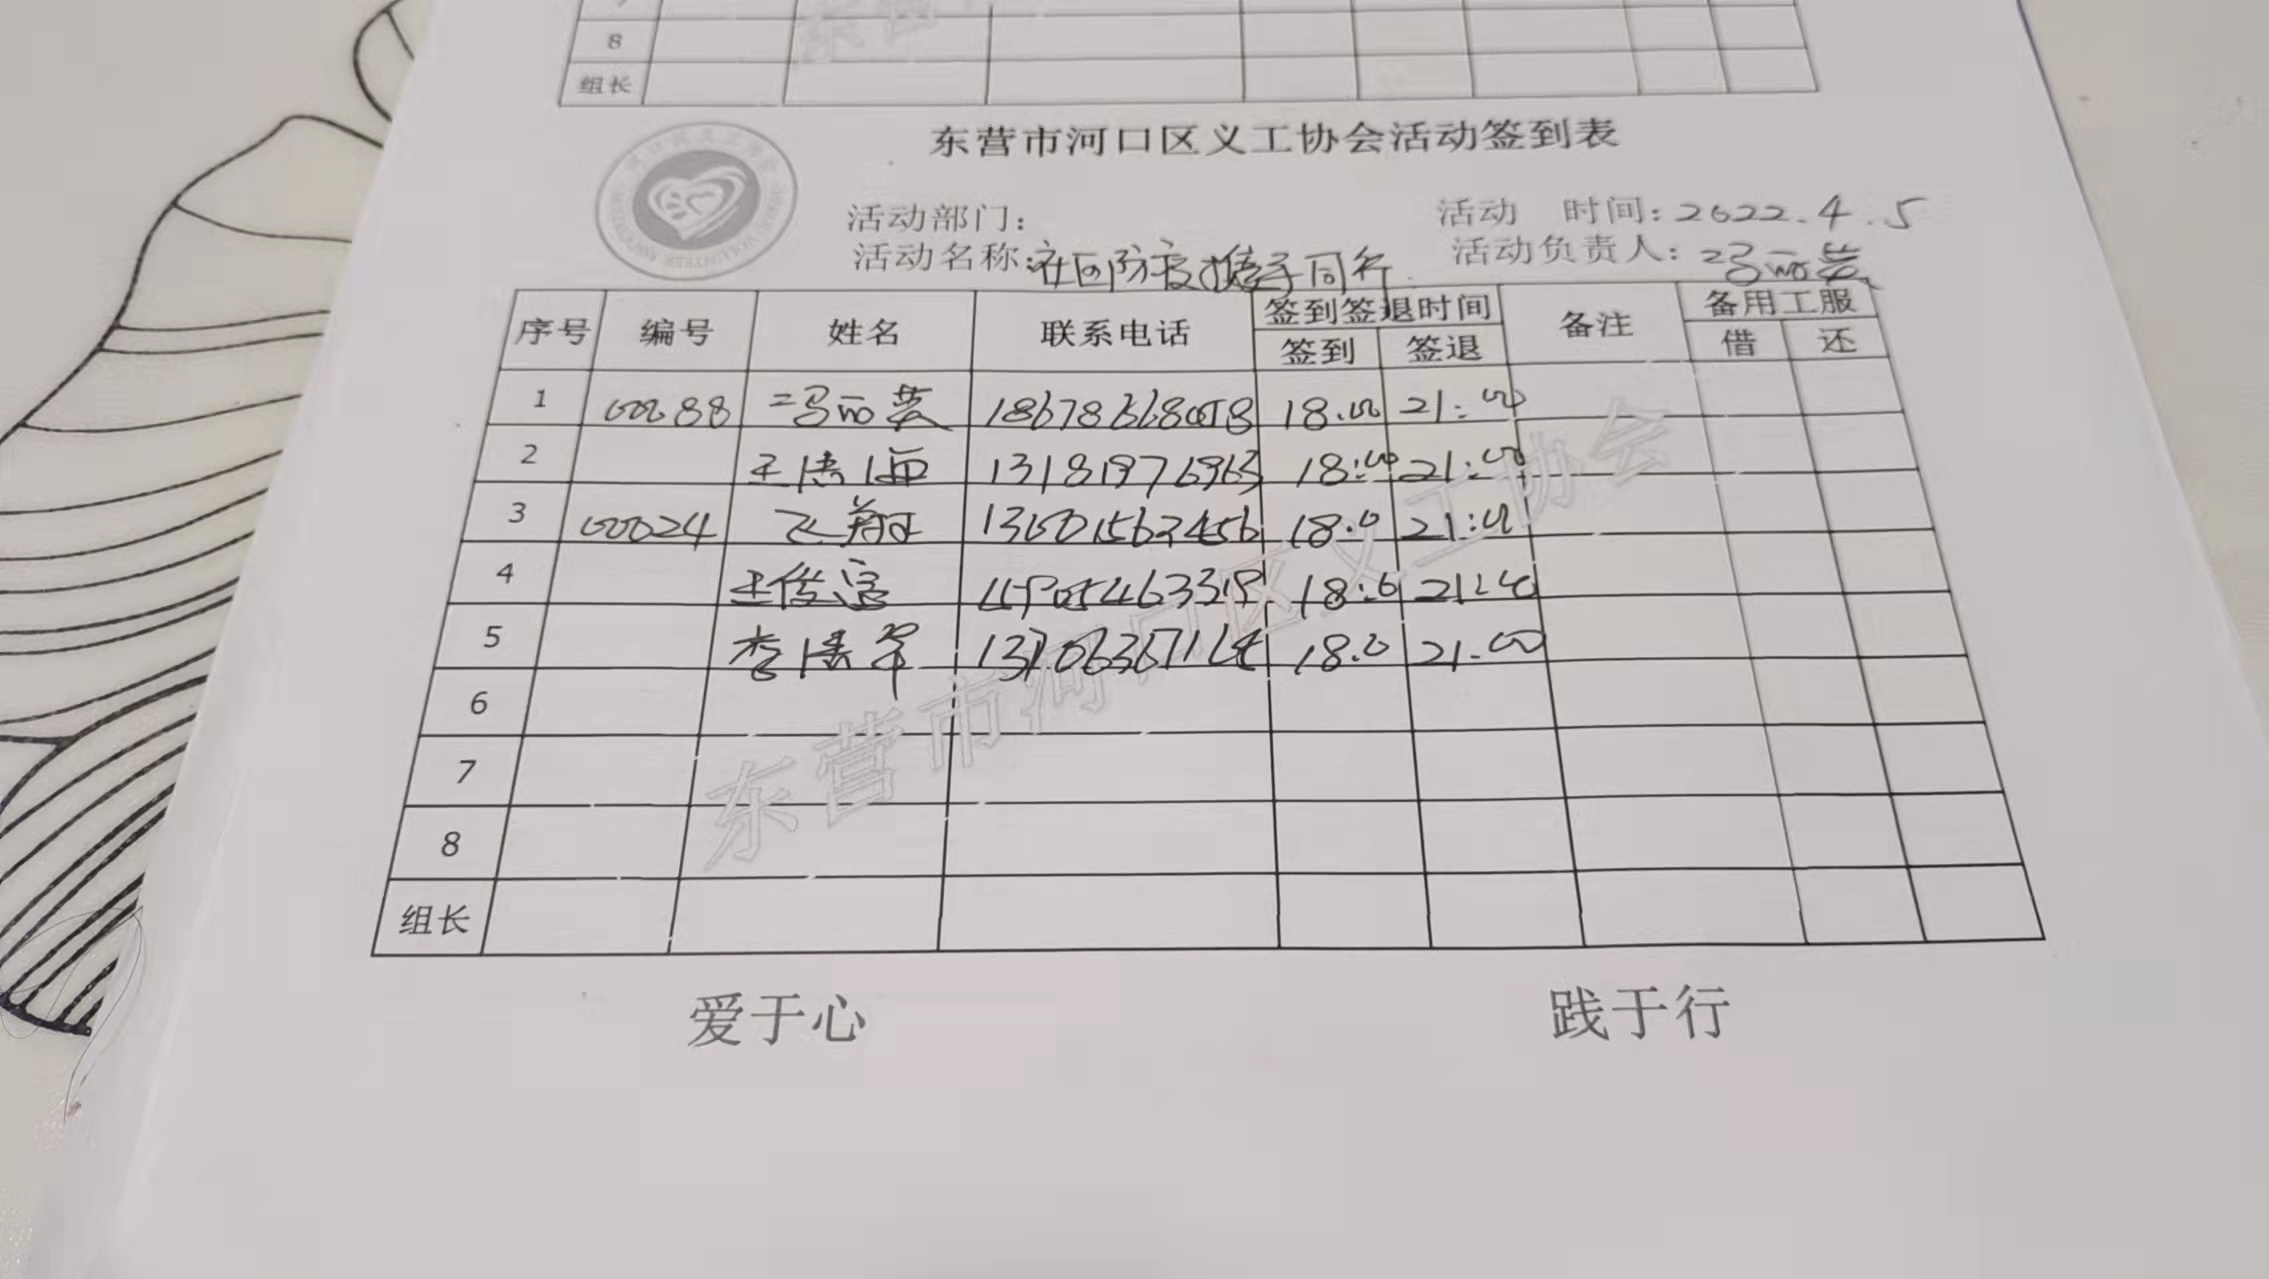 8
组长
东营市河口区义工协会活动签到表
活动部门：
活动 时间：2022.4.5
活动名称：社区防疫携手同行
活动负责人：冯丽芸
序号 编号 姓名 联系电话 签到签退时间 备注 备用工服
签到 签退 借 还
1 00088 冯丽芸 18:00 21:00
2 13181976963 18:00 21:00
3 00024 飞翔 13601563456 18:0 21:00
4 王俊宫 18:0
5 李洪军 18:0 21:00
6
7
8
组长
东营市河口区义工协会
爱于心 践于行